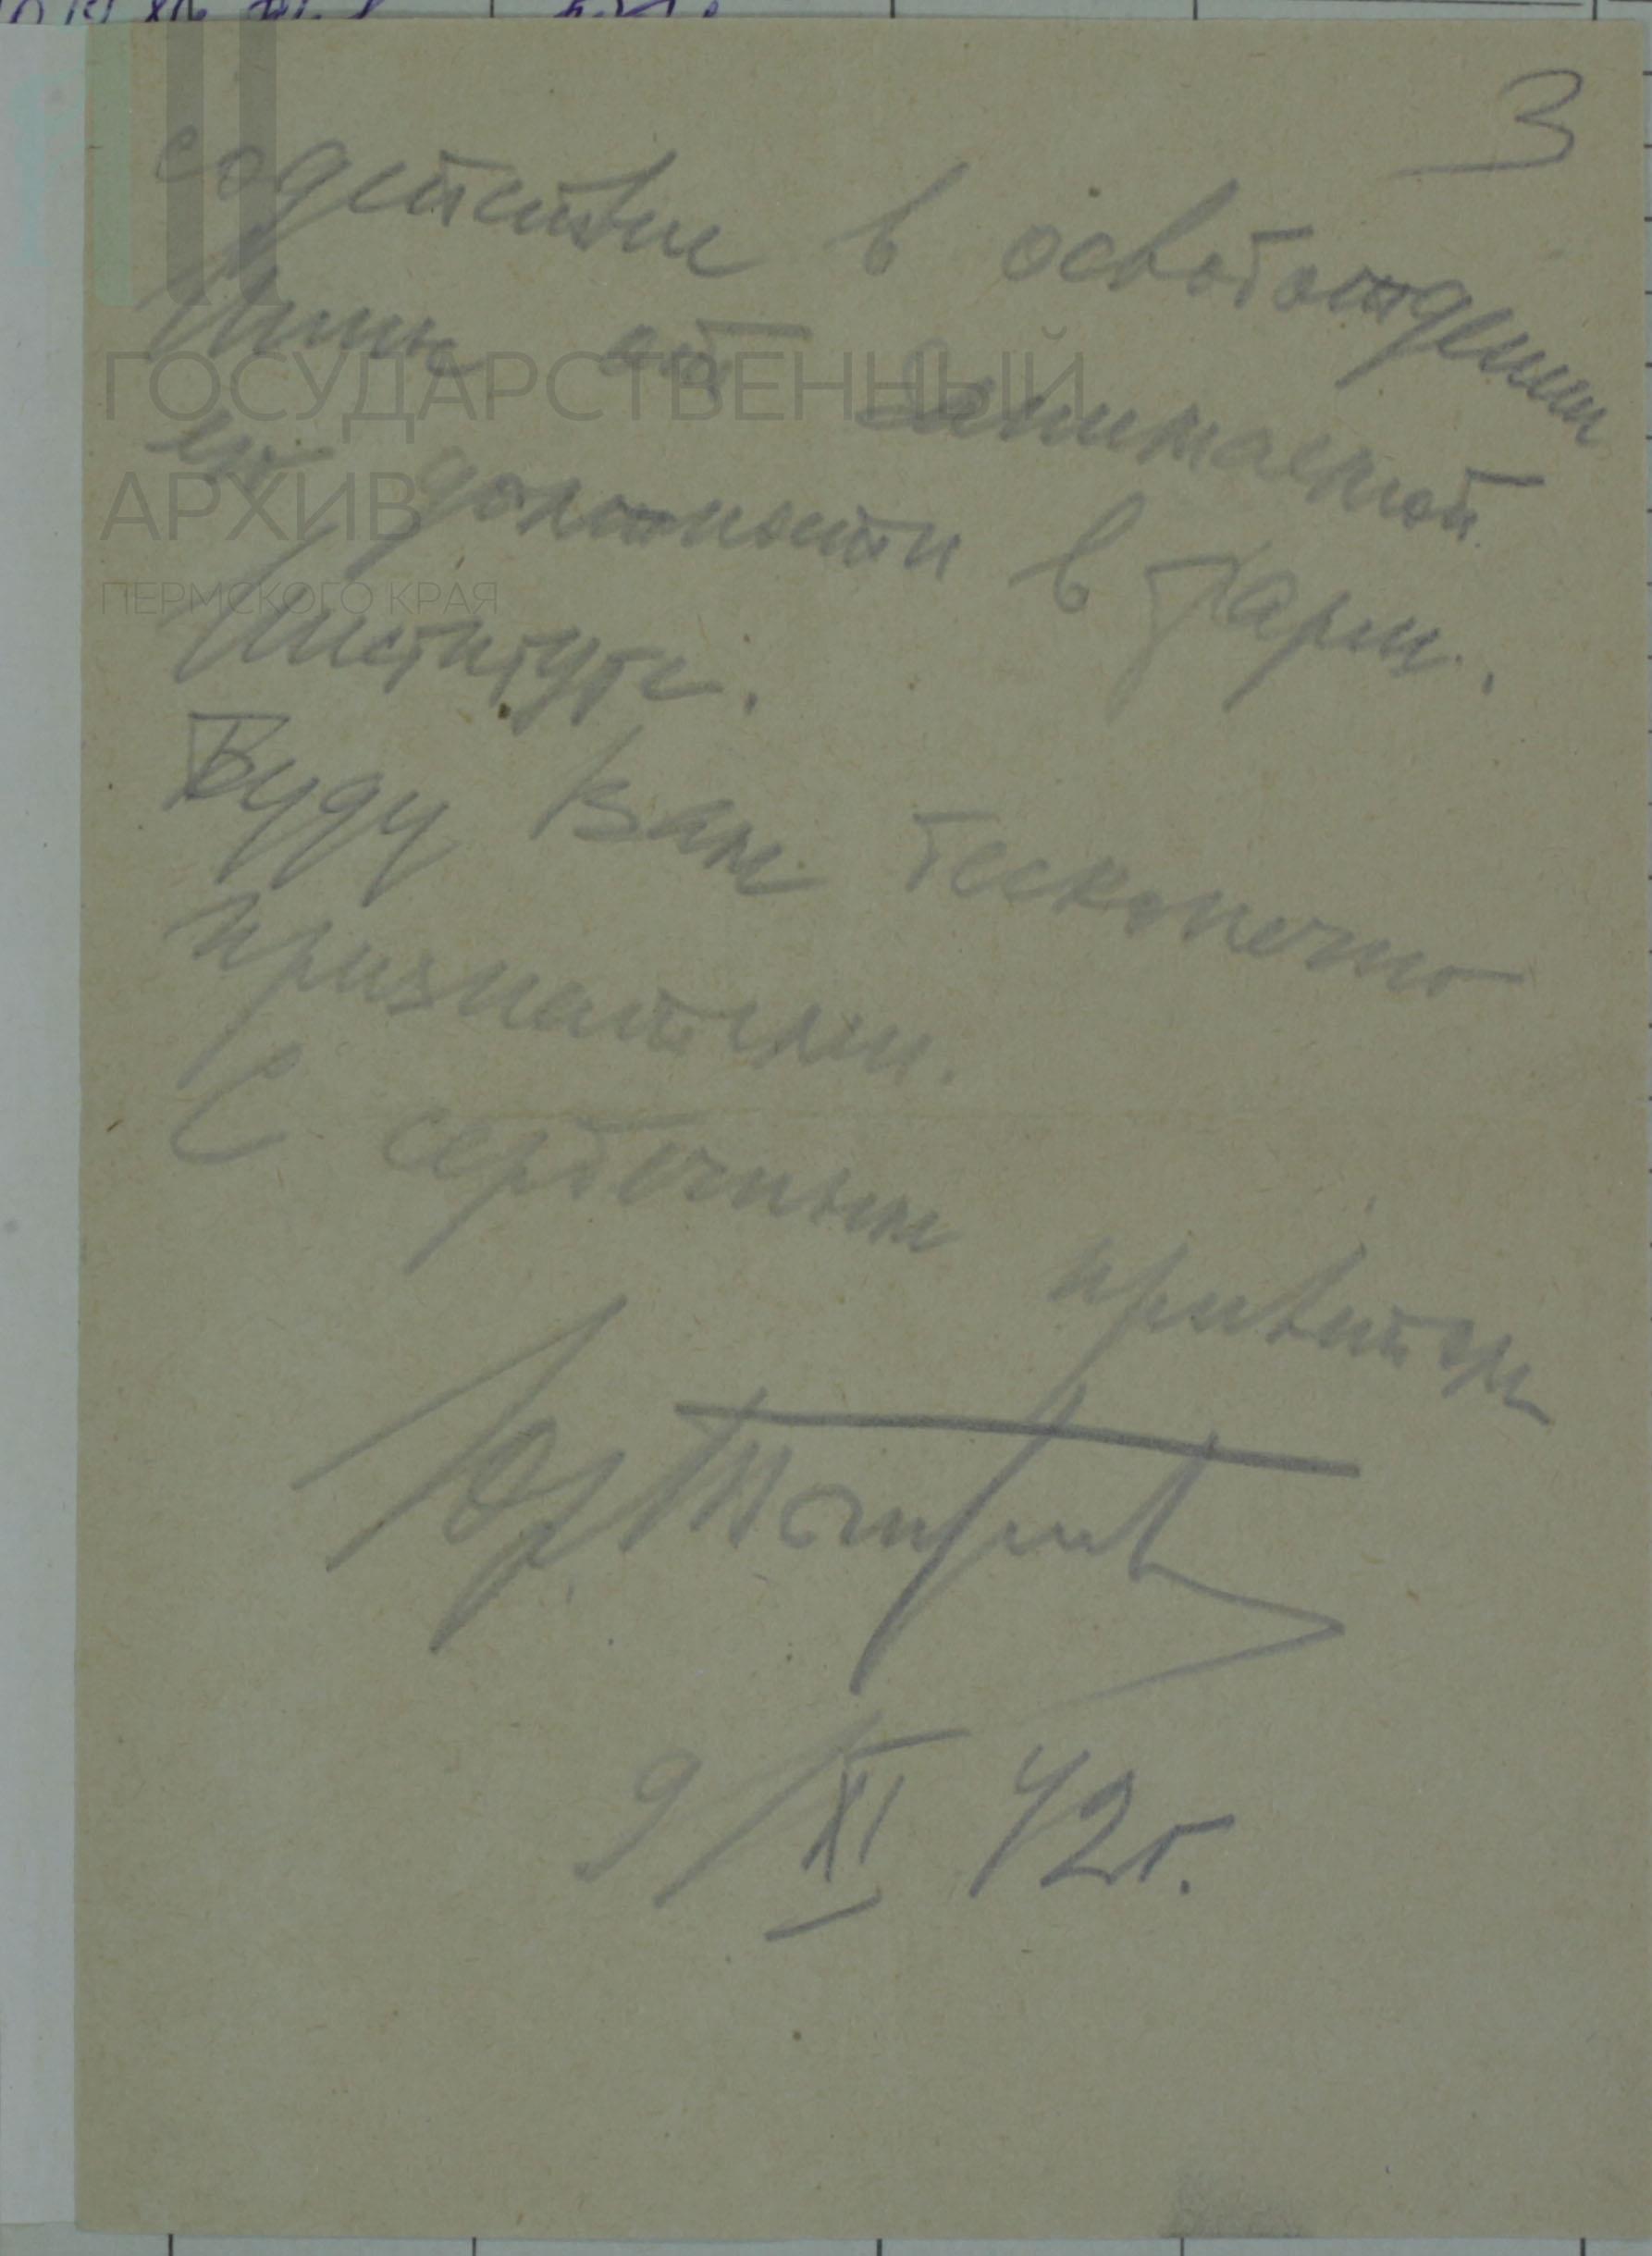 3
содействие в освобождении
меня от занимаемой
должности в Фарм.
Институте.
Буду Вам бесконечно
признателен.
С сердечным приветом
9/XI 42 г.
ГОСУДАРСТВЕННЫЙ
АРХИВ
ПЕРМСКОГО КРАЯ